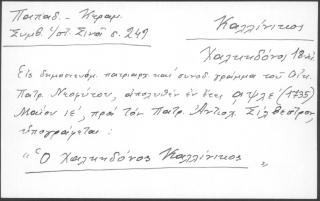 Παπαδ. - Κεραμ.
Συμβ. ἱστ. Σινᾶ σ. 249
Καλλίνικος
Χαλκηδόνος 18
Εἰς δημοσιευόμ. πατριαρχ. καὶ συνοδ. γράμμα τοῦ Οἰκ.
Πατρ. Νεοφύτου, ἀπολυθὲν ἐν ἔτει αψλέ (1735)
Μαΐου ιέ, πρὸς τὸν Πατρ. Ἀντιοχ. Σίλβεστρον,
ὑπογράφεται:
"Ὁ Χαλκηδόνος Καλλίνικος"